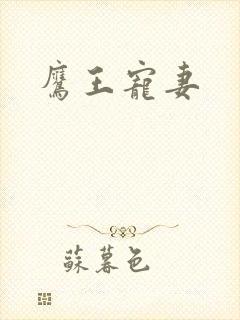 鷹王寵妻
蘇暮色